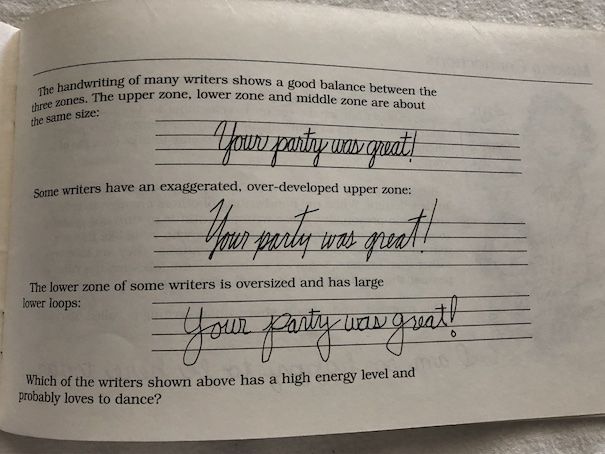 The handwriting of many writers shows a good balance between the
three zones. The upper zone, lower zone and middle zone are about
the same size:
Your party was great!
Some writers have an exaggerated, over-developed upper zone:
Your party was great!
The lower zone of some writers is oversized and has large
lower loops:
Your party was great!
Which of the writers shown above has a high energy level and
probably loves to dance?